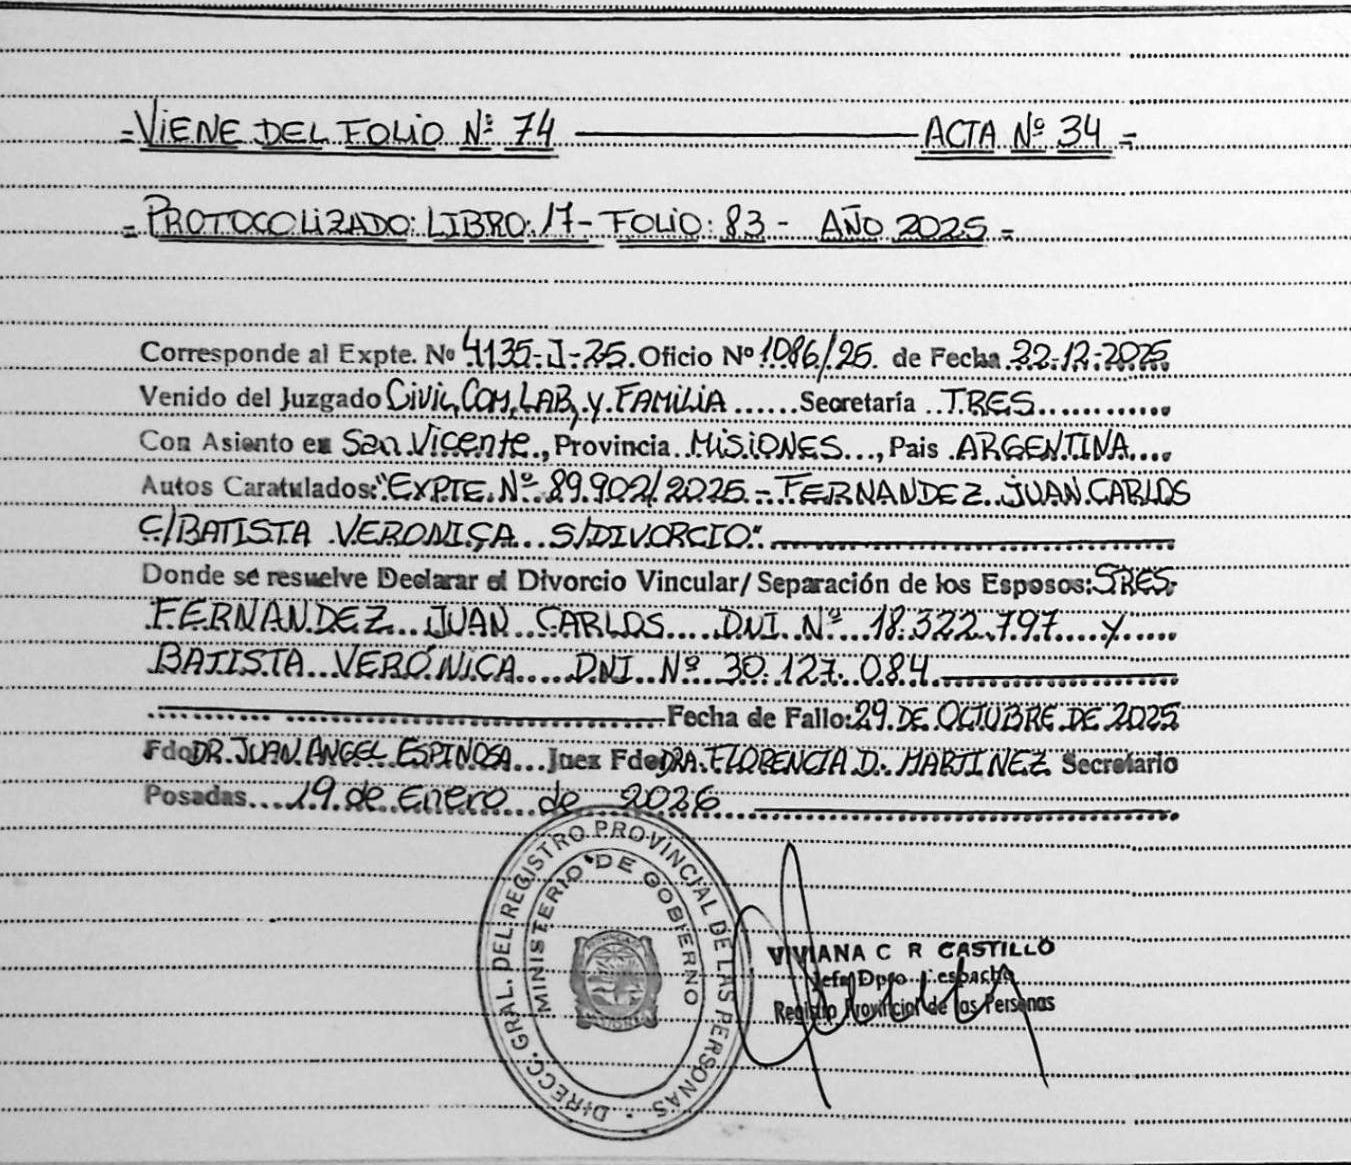 =VIENE DEL FOLIO Nº 74 ACTA Nº 34=
=PROTOCOLIZADO: LIBRO: 17- FOLIO: 83 - AÑO 2025=
Corresponde al Expte. Nº 4135-J-25. Oficio Nº 1086/25. de Fecha 22-12-2025
Venido del Juzgado Civil, Com, LAB, y FAMILIA ...... Secretaría ..TRES............
Con Asiento en San Vicente., Provincia .MISIONES..., Pais .ARGENTINA....
Autos Caratulados: "EXPTE. Nº 89.902/2025.- FERNANDEZ JUAN CARLOS
C/BATISTA VERONICA S/DIVORCIO".
Donde se resuelve Declarar el Divorcio Vincular/ Separación de los Esposos: SRES.
FERNANDEZ JUAN CARLOS.... DNI Nº 18.322.797.... y.....
BATISTA VERÓNICA..... DNI Nº 30.127.084.
Fecha de Fallo: 29 DE OCTUBRE DE 2025
Fdo DR. JUAN ANGEL ESPINOSA... Juez Fdo DRA. FLORENCIA D. MARTINEZ Secretario
Posadas... 19 de Enero de 2026
DIRECC. GRAL. DEL REGISTRO PROVINCIAL DE LAS PERSONAS
MINISTERIO DE GOBIERNO
VIVIANA C R CASTILLO
Jefa Dpto
Registro Provincial de las Personas